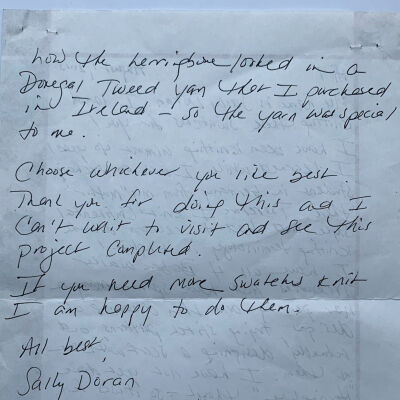 how the herringbone looked in a
Donegal Tweed yarn that I purchased
in Ireland - so the yarn was special
to me.
Choose whichever you like best.
Thank you for doing this and I
can't wait to visit and see this
project completed.
If you need more swatches knit
I am happy to do them.
All best,
Sally Doran